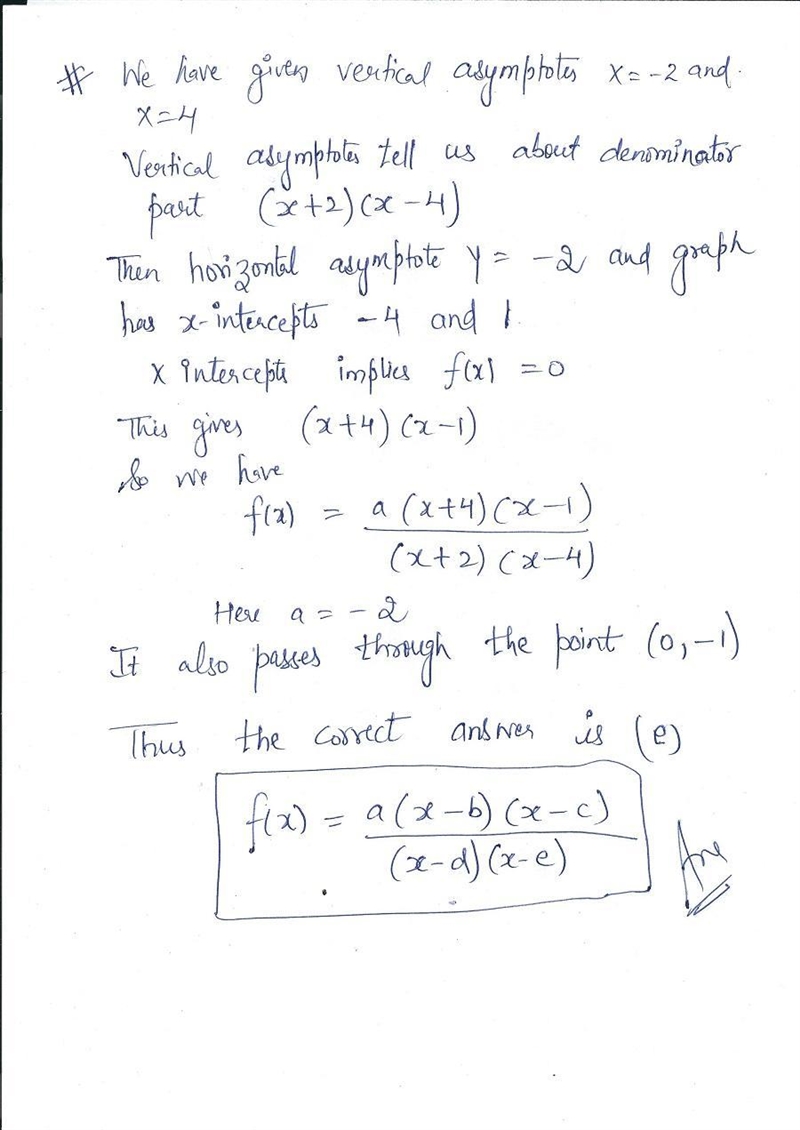 # We have given vertical asymptotes x = -2 and
x = 4
Vertical asymptotes tell us about denominator
part (x+2)(x-4)
Then horizontal asymptote y = -2 and graph
has x-intercepts -4 and 1.
x intercepts implies f(x) = 0
This gives (x+4)(x-1)
So we have
f(x) = a(x+4)(x-1)
(x+2)(x-4)
Here a = -2
It also passes through the point (0,-1)
Thus the correct answer is (e)
f(x) = a(x-b)(x-c)
(x-d)(x-e)
Ans